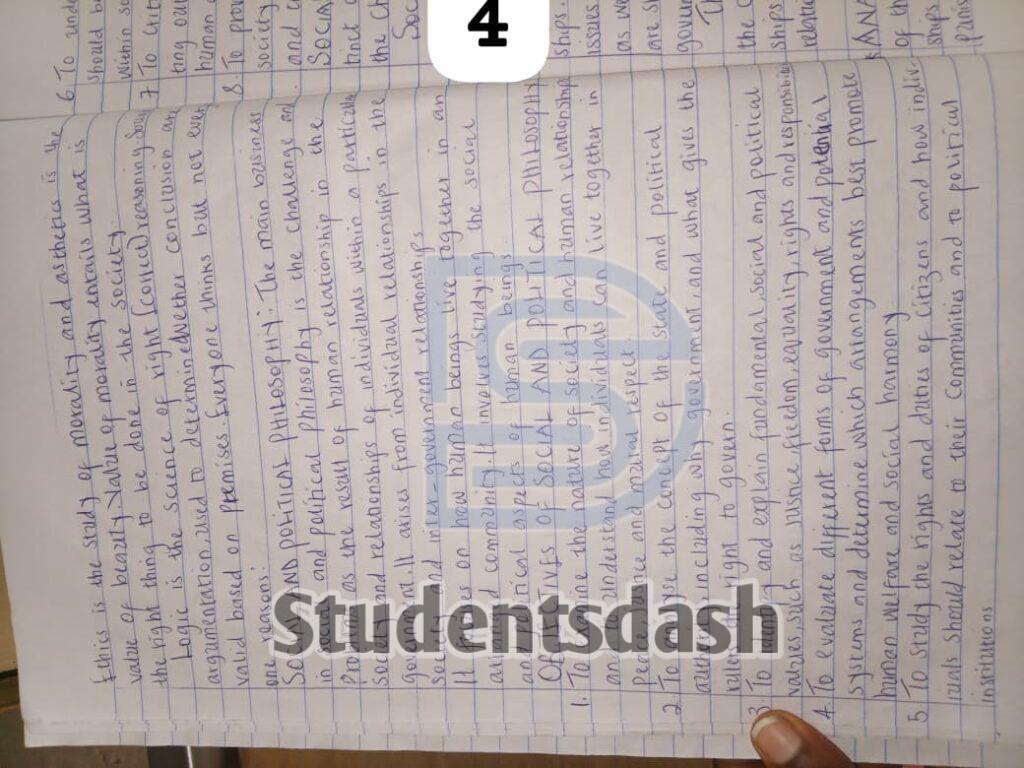 4
Ethics is the study of morality and aesthetics is the
value of beauty. Value of morality entails what is
the right thing to be done in the society.
Logic is the science of right (correct) reasoning,
argumentation used to determine whether conclusion are
valid based on premises. Everyone thinks but not every
one reasons.
SOCIAL AND POLITICAL PHILOSOPHY: The main business
in social and political philosophy is the challenge and
as the result of human relationship in the
society and relationships of individuals within a particular
It arises from individual relationships in the
society and inter-government relationships
It focuses on how human beings live together in an
community. It involves studying the social
and political aspects of human beings
OBJECTIVES OF SOCIAL AND POLITICAL PHILOSOPHY
1. To the nature of society and human relationship
and understand how individuals can live together in
peace and mutual respect.
2. To the concept of the state and political
including why government, and what gives the
rulers the right to govern.
3. To and explain fundamental social and political
values such as justice, freedom, equality, rights and responsibi
4. To evaluate different forms of government and potential
systems and determine which arrangements best promote
human welfare and social harmony
5. To study the rights and duties of citizens and how indiv-
iduals should relate to their communities and to political
institutions
6. To unde
should be
within so
7. To crit
ting out
human
8. To prov
society
and
SOCIA
tinct
the Ch
Soc
ships.
issues
as we
are s
gover
Th
the c
ships
relatio
of th
ships
Studentsdash